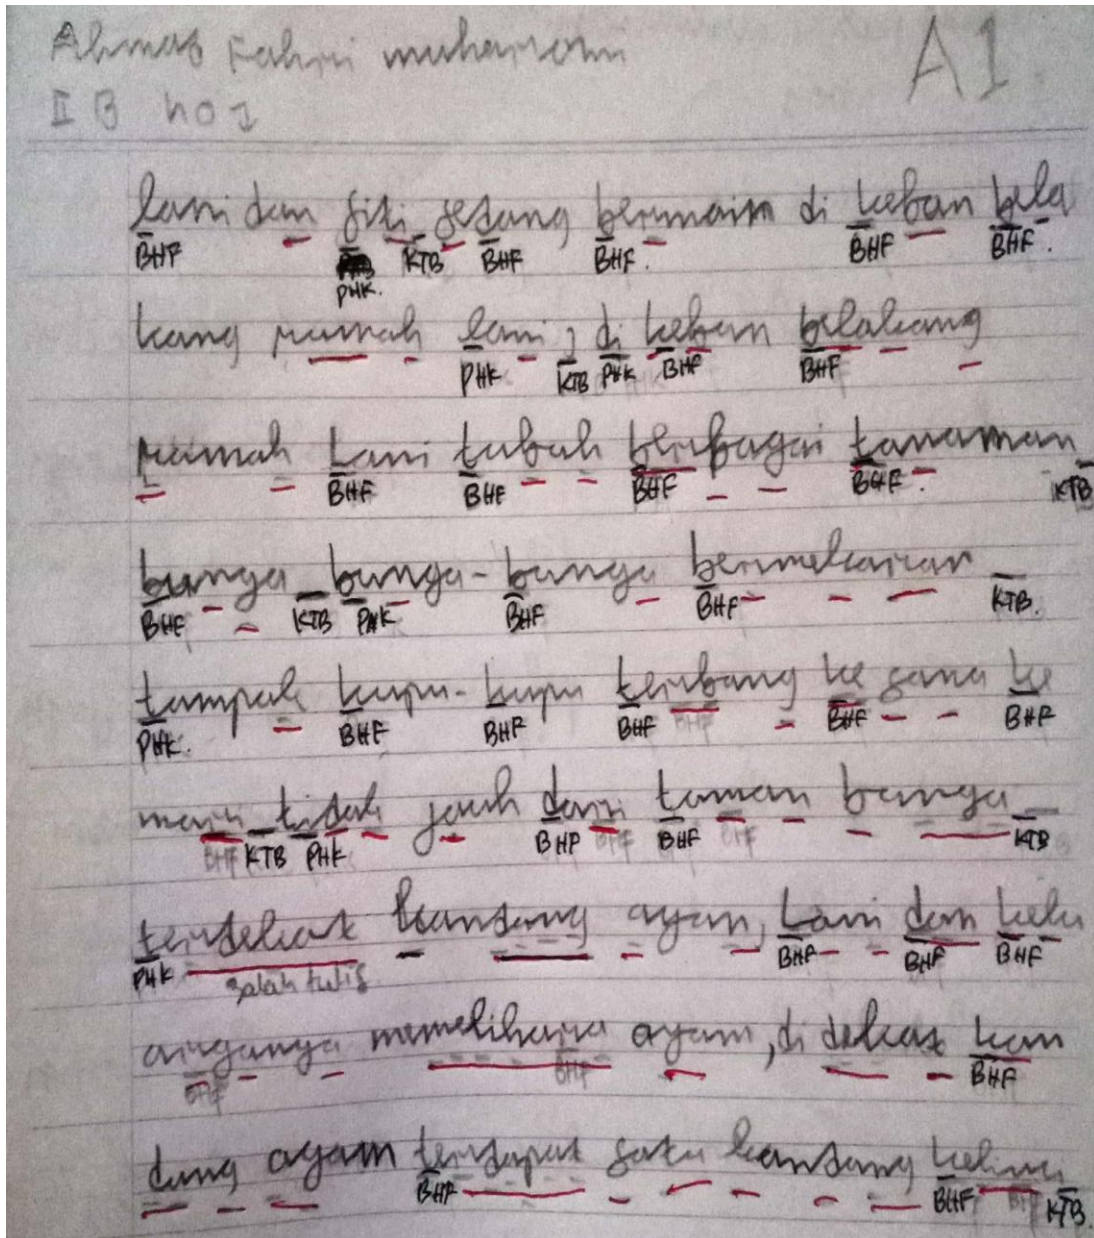 Ahmad Fahri muharrom A1
II B no 1
lani dan siti sedang bermain di keban bela
BHF PHK. KTB BHF BHF. BHF BHF.
kang rumah lani, di keban belakang
PHK KTB PHK BHF BHF
rumah Lani tubuh berbagai tanaman
BHF BHF BHF BHF. KTB
bunga bunga-bunga bermekaran
BHF KTB PHK BHF BHF KTB.
tampak kupu-kupu terbang ke sana ke
PHK. BHF BHF BHF BHF BHF BHF
mari tidak jauh dari taman bunga
BHF KTB PHK BHF BHF BHF BHF KTB
terdekat kandang ayam, Lani dan kelu
PHK salah tulis BHF BHF BHF
arganya memelihara ayam, di dekat kan
BHF BHF BHF
dang ayam terdapat satu kandang kelinci
BHF BHF BHF KTB.